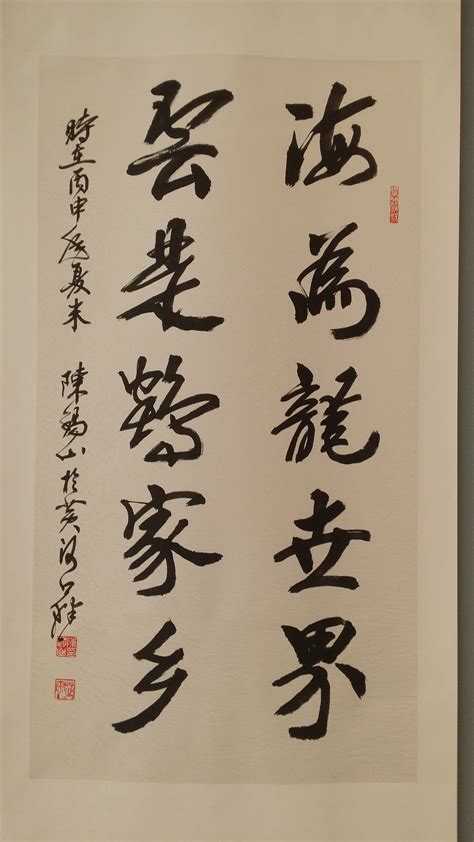 海為龍世界
雲是鶴家乡
時在丙申夏末 陳錫山於黃河